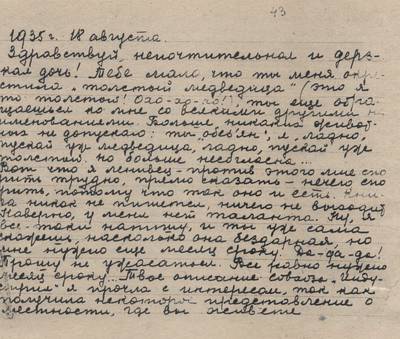 43
1935 г. 18 августа.
Здравствуй, непочтительная и дерз-
кая дочь! Тебе мало, что ты меня окре-
стила „толстый медведица“ (это я
то толстый! Охо-хо-хо!), ты еще обра-
щаешься ко мне со всякими другими н
именованиями. Больше никаких живот-
ных не допускаю: ты обсы'ян', и, ладно,
пускай уж медведица, ладно, пускай уже
толстой. но больше несогласна...
Вот что я ленивец - против этого мне спо
рить трудно, прямо сказать - нечего спо
рить, потому что так оно и есть. Кни-
га никак не пишется, ничего не выходит
Наверно, у меня нет таланта. Ну, я
все-таки напишу, и ты уже сама
скажешь, насколько она бездарная, но
мне нужно еще месяц сроку. Да-да-да!
Прошу не ужасаться. Все равно нужно
месяц сроку... Твое описание совхоза „Инду-
стрия“ я прочла с интересом, так как
получила некоторое представление о
местности, где вы живете